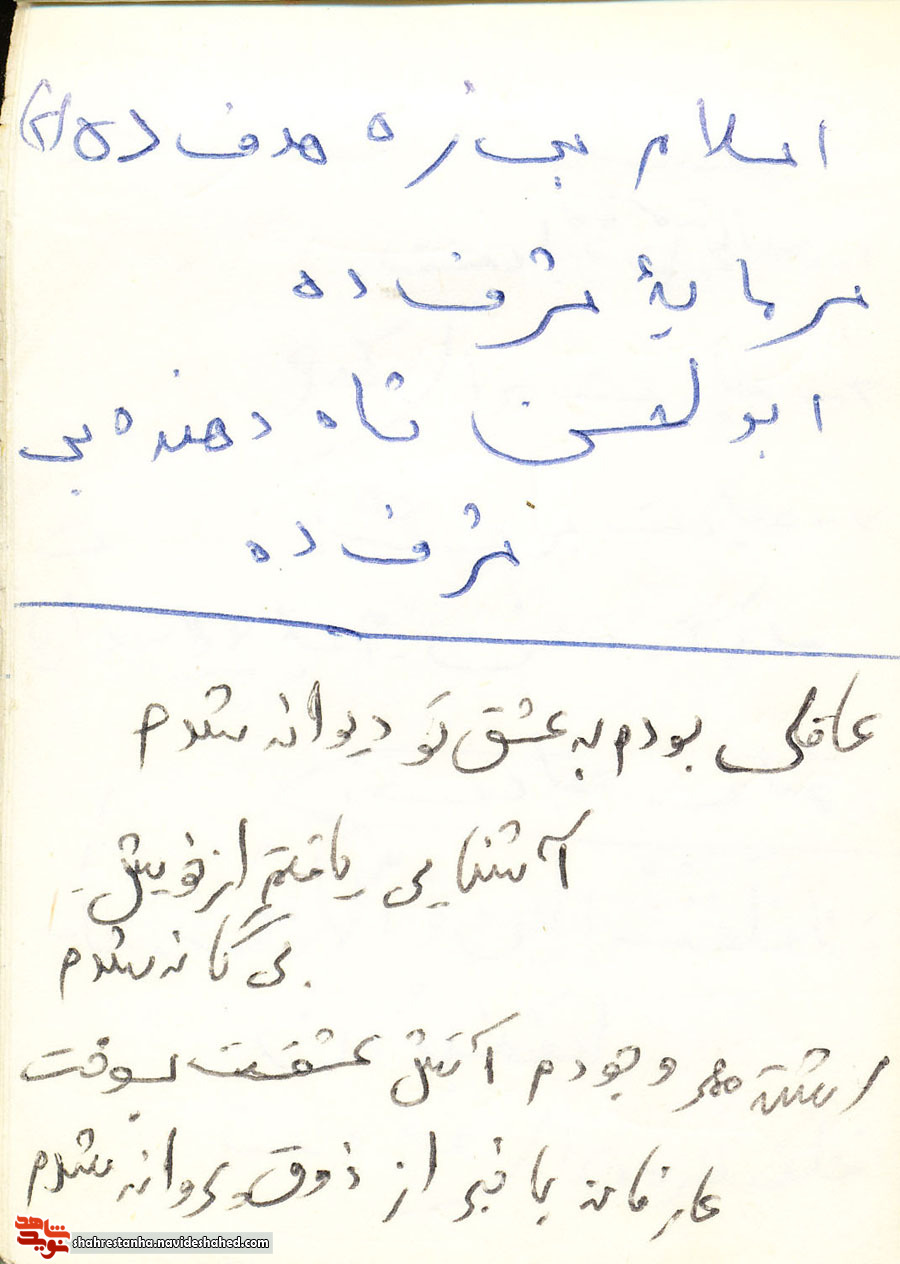 اسلام به زه هدف ده (۲)
سرمایهٔ شرف ده
ابولحسن شاه دهنده بی
شرف ده
عاقلی بودم به عشق تو دیوانه شدم
آشنایی یافتم از خویش
بی گانه شدم
رشته مهر وجودم آتش عشقت بسوخت
عارفانه با خبر از ذوق پروانه شدم
نوید شاهد
shahrestanha.navideshahed.com